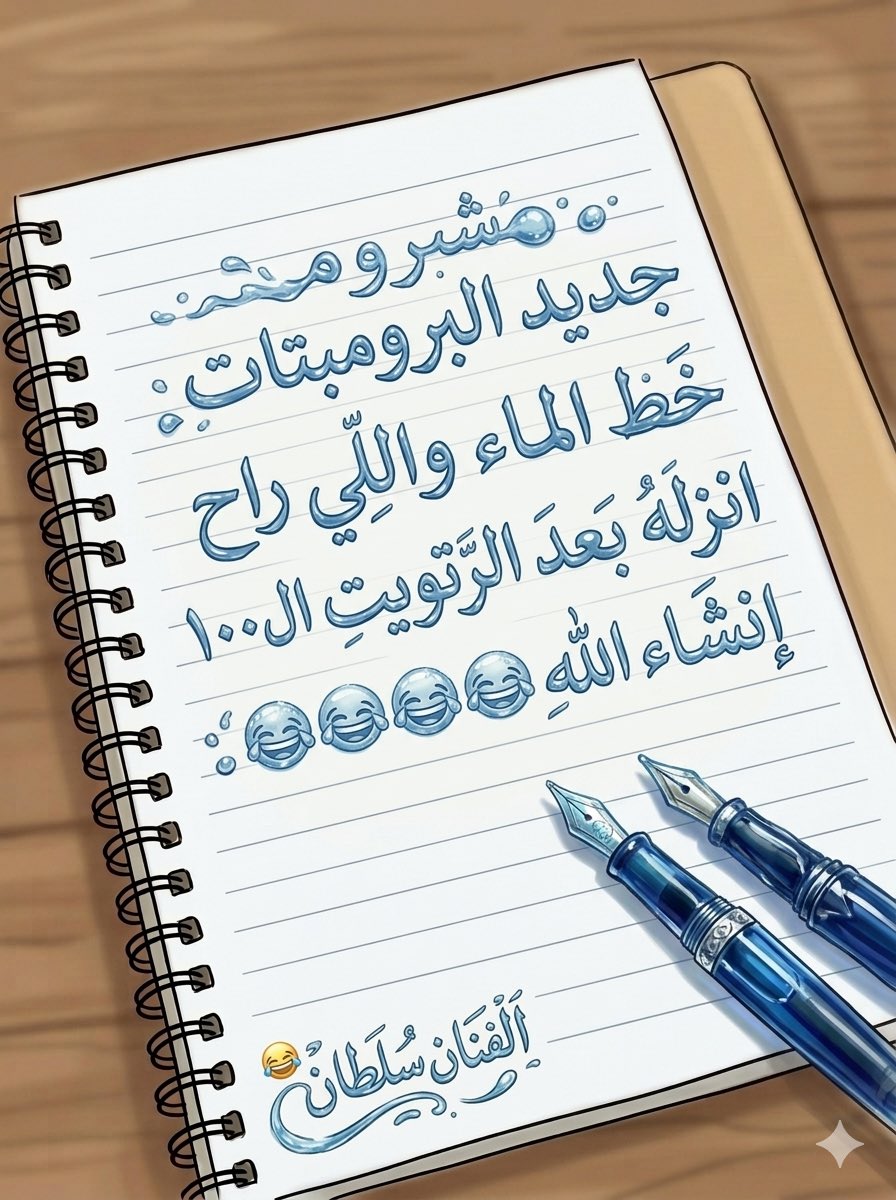 جديد البرومبتاتِ
خَظ الماء واللِّي راح
انزلَهُ بَعدَ الرَّتويتِ ال١٠٠
إنشَاء اللّهِ 😂😂😂😂
اَلْفنَان سُلَطانْ 😂